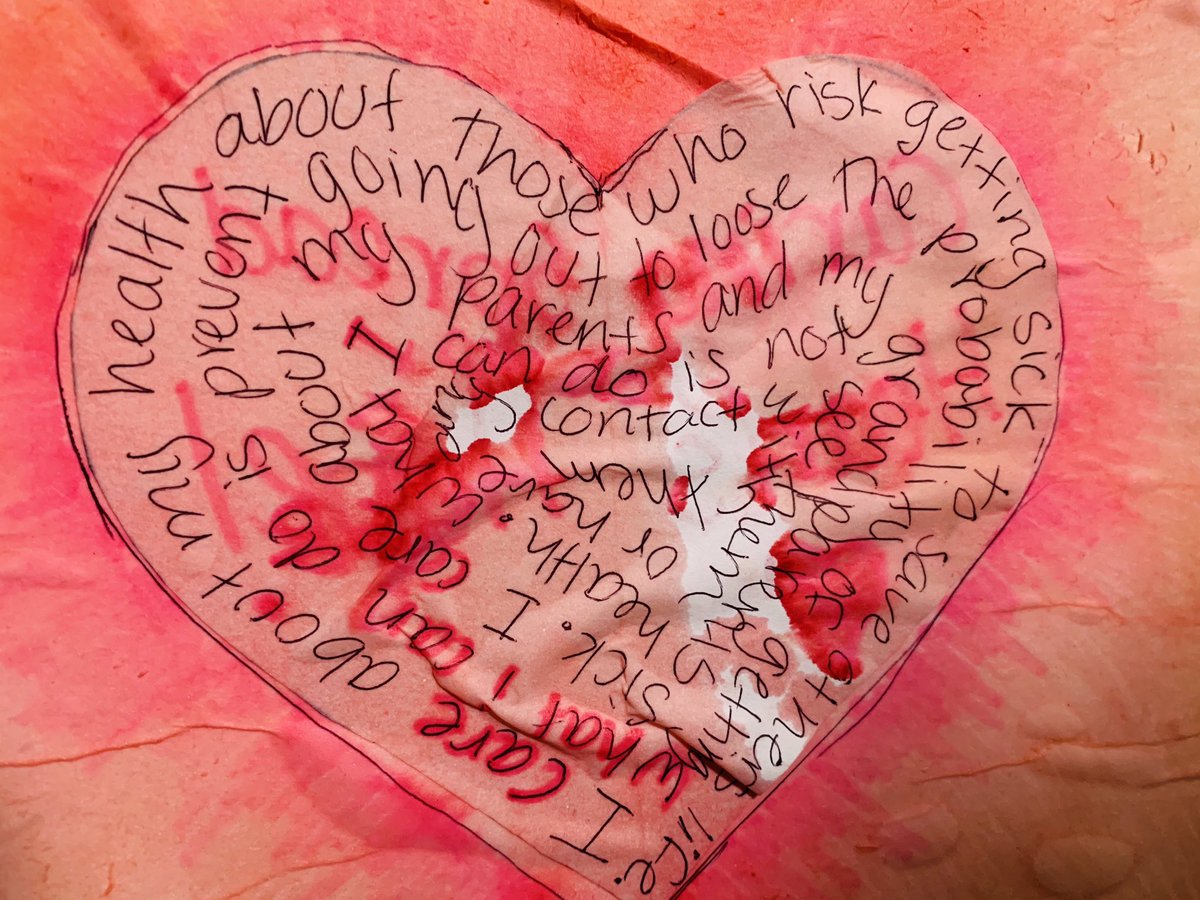 I care about my health about those who risk getting sick to save other life.
What I can do is prevent going out to loose the probability of getting sick.
I care about my parents and my health.
what I can do is not see them or have any contact with them